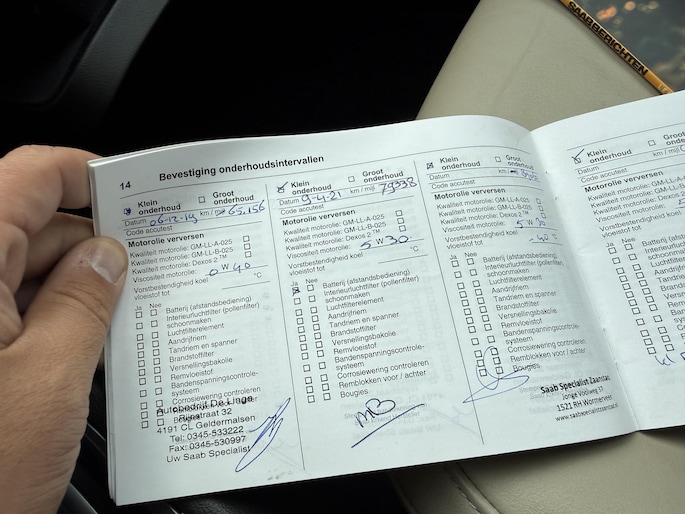 SAAB BERICHTEN
14 Bevestiging onderhoudsintervallen
Klein onderhoud Groot onderhoud
Datum 06-12-19 km / mijl 65.156
Code accutest
Motorolie verversen
Kwaliteit motorolie: GM-LL-A-025
Kwaliteit motorolie: GM-LL-B-025
Kwaliteit motorolie: Dexos 2™
Viscositeit motorolie: 0W40
Vorstbestendigheid koelvloeistof tot °C
Ja Nee
Batterij (afstandsbediening)
Interieurluchtfilter (pollenfilter) schoonmaken
Luchtfilterelement
Aandrijfriem
Tandriem en spanner
Brandstoffilter
Versnellingsbakolie
Remvloeistof
Bandenspanningscontrole-
systeem
Corrosiewering controleren
Autobedrijf De Linge
Rijnstraat 32
4191 CL Geldermalsen
Tel: 0345-533222
Fax: 0345-530997
Uw Saab Specialist
Klein onderhoud Groot onderhoud
Datum 9-4-21 km / mijl 79338
Code accutest
Motorolie verversen
Kwaliteit motorolie: GM-LL-A-025
Kwaliteit motorolie: GM-LL-B-025
Kwaliteit motorolie: Dexos 2™
Viscositeit motorolie: 5W30
Vorstbestendigheid koelvloeistof tot °C
Ja Nee
Batterij (afstandsbediening)
Interieurluchtfilter (pollenfilter) schoonmaken
Luchtfilterelement
Aandrijfriem
Tandriem en spanner
Brandstoffilter
Versnellingsbakolie
Remvloeistof
Bandenspanningscontrole-
systeem
Corrosiewering controleren
Remblokken voor / achter
Bougies
Klein onderhoud Groot onderhoud
Datum km /
Code accutest
Motorolie verversen
Kwaliteit motorolie: GM-LL-A-025
Kwaliteit motorolie: GM-LL-B-025
Kwaliteit motorolie: Dexos 2™
Viscositeit motorolie: 5W30
Vorstbestendigheid koelvloeistof tot -40 °C
Ja Nee
Batterij (afstandsbediening)
Interieurluchtfilter (pollenfilter) schoonmaken
Luchtfilterelement
Aandrijfriem
Tandriem en spanner
Brandstoffilter
Versnellingsbakolie
Remvloeistof
Bandenspanningscontrole-
systeem
Corrosiewering controleren
Remblokken voor / achter
Bougies
Saab Specialist Zaanstad
1521 RH Wormerveer
Klein onderhoud Groot onderhoud
Datum km / mijl
Code accutest
Motorolie verversen
Kwaliteit motorolie: GM-LL-A-025
Kwaliteit motorolie: GM-LL-B
Kwaliteit motorolie: Dexos 2
Viscositeit motorolie:
Vorstbestendigheid koel
vloeistof tot
Ja Nee